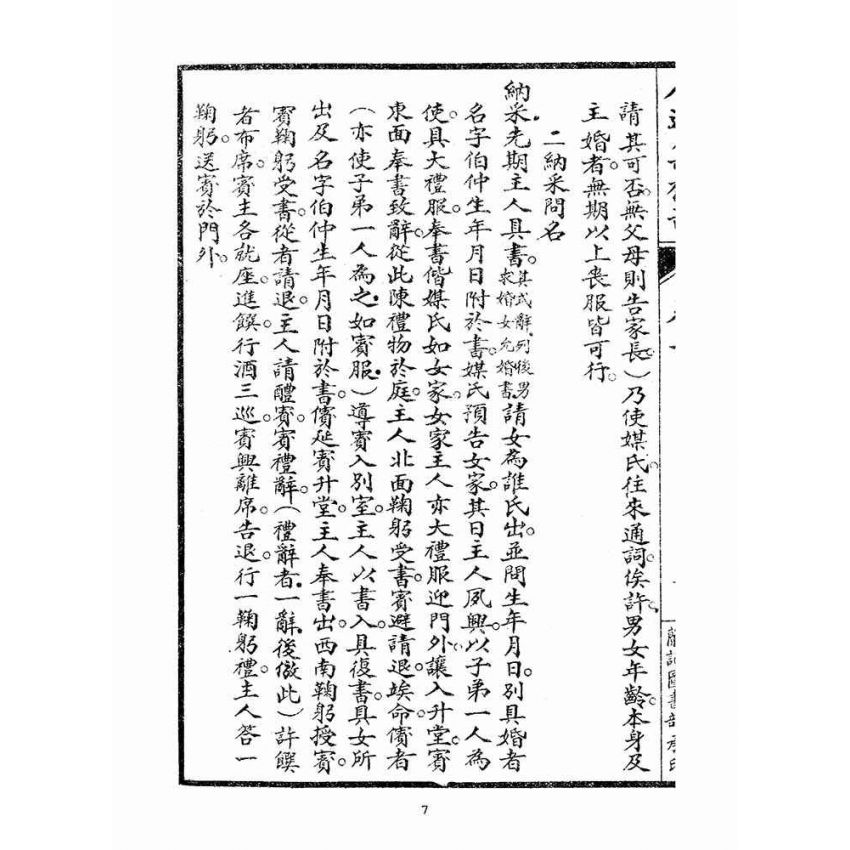 請其可否。無父母則告家長。）乃使媒氏。往來通詞。俟許。男女年齡。本身及
主婚者。無期以上喪服皆可行。
二納采問名
納采。先期主人具書。其式辭列後男求婚女允婚書請女為誰氏出。並問生年月日。別具婚者
名字伯仲生年月日附於書。媒氏預告女家。其日主人夙興。以子弟一人為
使。具大禮服。奉書偕媒氏如女家。女家主人亦大禮服迎門外。讓入升堂。賓
東面奉書致辭。從此陳禮物於庭。主人北面鞠躬受書。賓避請退。竢命。儐者
（亦使子弟一人為之。如賓服。）導賓入別室。主人以書入。具復書。具女所
出及名字伯仲生年月日附於書。儐延賓升堂。主人奉書出。西南鞠躬授賓。
賓鞠躬受書。從者請退。主人請醴賓。賓禮辭。（禮辭者。一辭。後倣此）許。饌
者布席。賓主各就座。進饌。行酒三巡。賓興離席。告退。行一鞠躬禮。主人答一
鞠躬。送賓於門外。
7